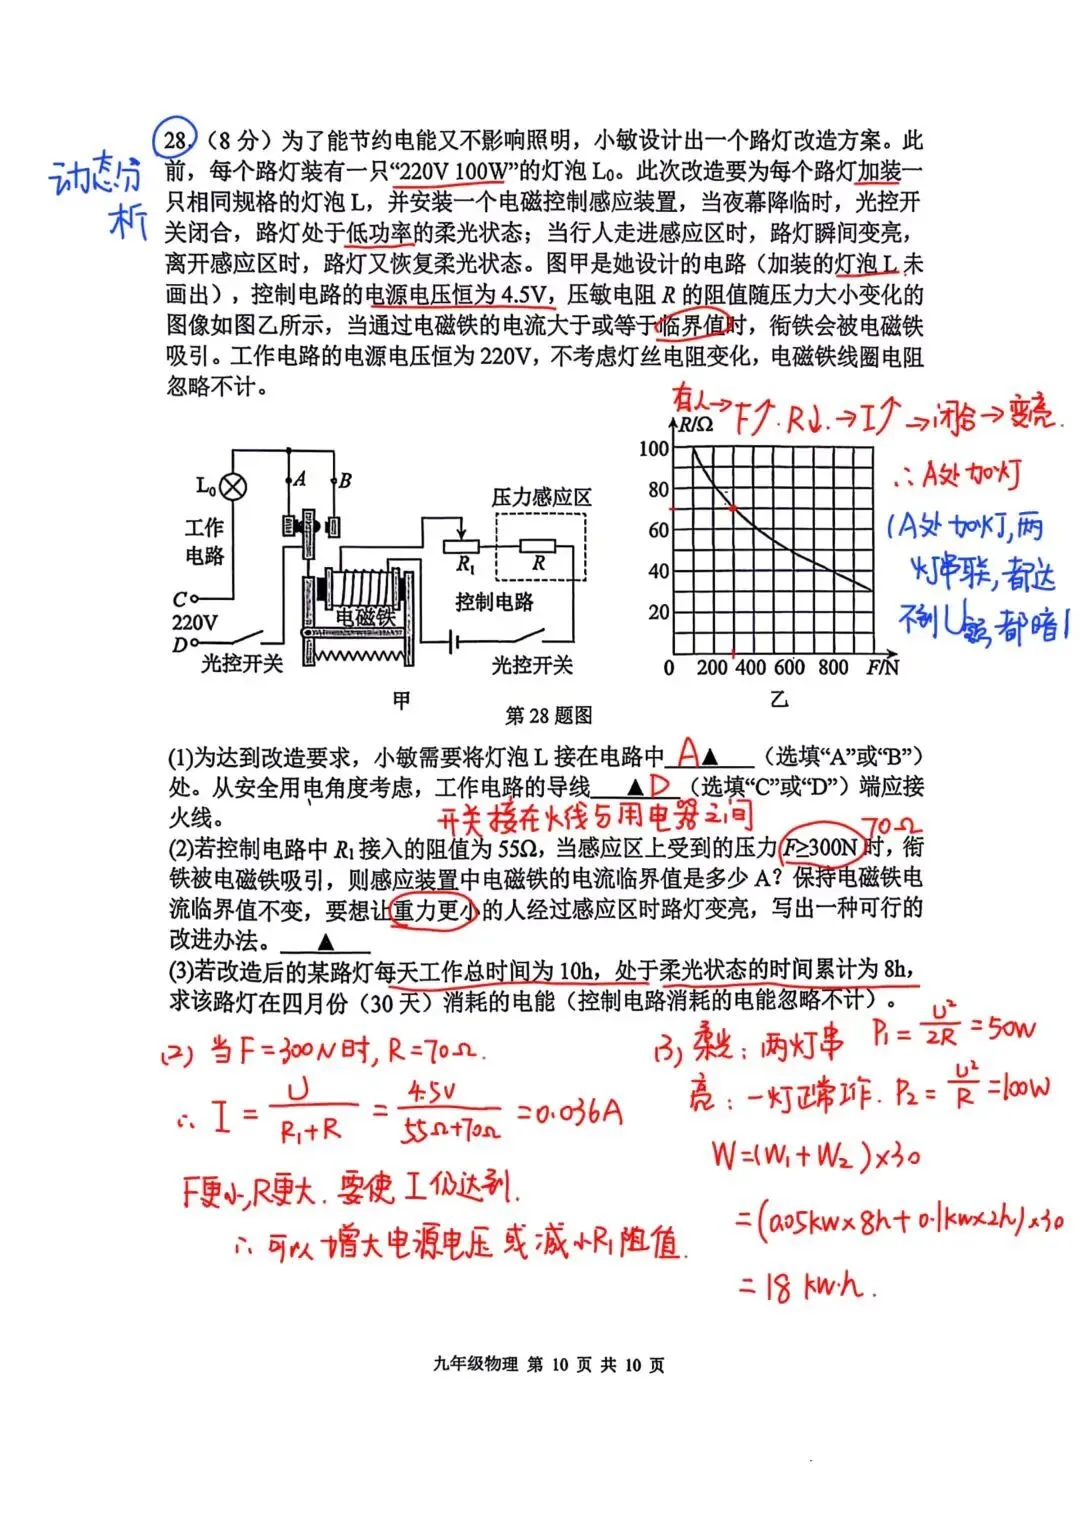 28.(8分)为了能节约电能又不影响照明,小敏设计出一个路灯改造方案。此
动态分析
前,每个路灯装有一只“220V 100W”的灯泡 L₀。此次改造要为每个路灯加装一
只相同规格的灯泡 L,并安装一个电磁控制感应装置,当夜幕降临时,光控开
关闭合,路灯处于低功率的柔光状态;当行人走进感应区时,路灯瞬间变亮,
离开感应区时,路灯又恢复柔光状态。图甲是她设计的电路(加装的灯泡 L 未
画出),控制电路的电源电压恒为 4.5V,压敏电阻 R 的阻值随压力大小变化的
图像如图乙所示,当通过电磁铁的电流大于或等于临界值时,衔铁会被电磁铁
吸引。工作电路的电源电压恒为 220V,不考虑灯丝电阻变化,电磁铁线圈电阻
忽略不计。
有人→F↑.R↓.→I↑→闭合→变亮.
∴A处加灯
(A处加灯,两
灯串联,都达
不到U额,都暗)
L₀
A
B
工作
电路
C
220V
D
光控开关
电磁铁
R₁
压力感应区
R
控制电路
光控开关
甲
R/Ω
100
80
60
40
20
0 200 400 600 800 F/N
乙
第 28 题图
(1)为达到改造要求,小敏需要将灯泡 L 接在电路中 A▲ (选填“A”或“B”)
处。从安全用电角度考虑,工作电路的导线 ▲D (选填“C”或“D”)端应接
火线。
开关接在火线与用电器之间
70Ω
(2)若控制电路中 R₁ 接入的阻值为 55Ω,当感应区上受到的压力 F≥300N 时,衔
铁被电磁铁吸引,则感应装置中电磁铁的电流临界值是多少 A?保持电磁铁电
流临界值不变,要想让重力更小的人经过感应区时路灯变亮,写出一种可行的
改进办法。 ▲
(3)若改造后的某路灯每天工作总时间为 10h,处于柔光状态的时间累计为 8h,
求该路灯在四月份(30 天)消耗的电能(控制电路消耗的电能忽略不计)。
(2) 当F=300N时,R=70Ω.
∴ I = U/(R₁+R) = 4.5V/(55Ω+70Ω) = 0.036A
F更小,R更大.要使I仍达到.
∴可以增大电源电压或减小R₁阻值.
(3) 柔光:两灯串 P₁ = U²/2R = 50W
亮:一灯正常工作. P₂ = U²/R = 100W
W=(W₁+W₂)×30
=(0.05kw×8h+0.1kw×2h)×30
=18 kw·h.
九年级物理 第 10 页 共 10 页